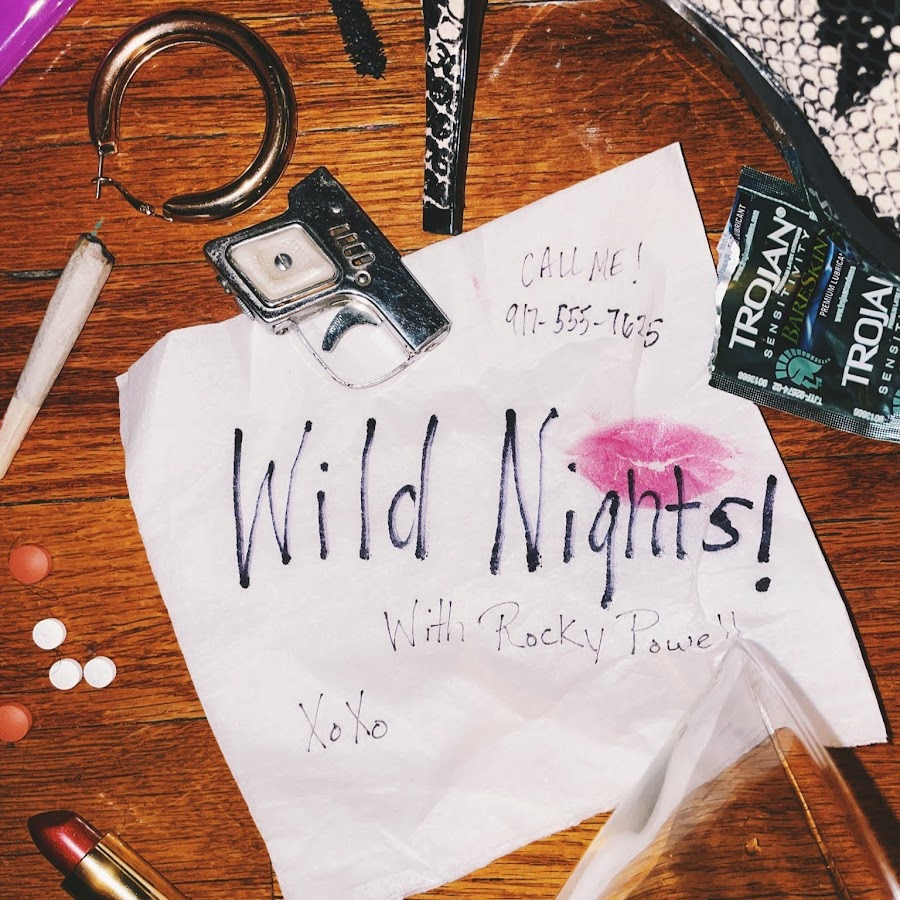 CALL ME!
917-555-7625
Wild Nights!
With Rocky Powell
XoXo
TROJAN®
SENSITIVITY
BARESKIN
PREMIUM LUBRICANT
TROJAN
SENSITI
LUBRICANT